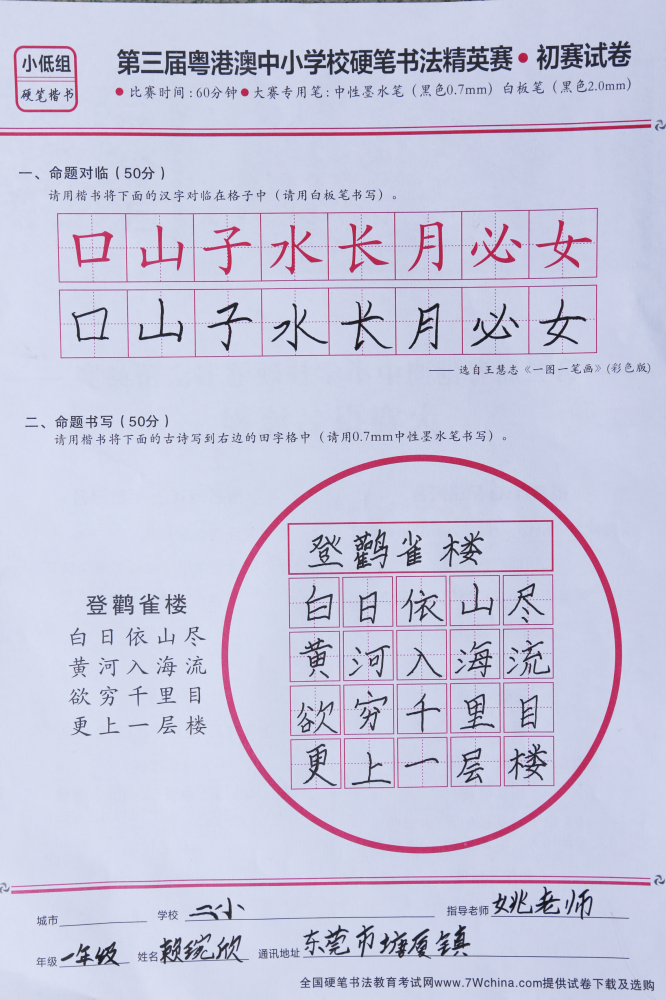 小低组
硬笔楷书
第三届粤港澳中小学校硬笔书法精英赛•初赛试卷
●比赛时间:60分钟●大赛专用笔:中性墨水笔（黑色0.7mm）白板笔（黑色2.0mm）
一、命题对临（50分）
请用楷书将下面的汉字对临在格子中（请用白板笔书写）。
口山子水长月必女
口山子水长月必女
—— 选自王慧志《一图一笔画》(彩色版)
二、命题书写（50分）
请用楷书将下面的古诗写到右边的田字格中（请用0.7mm中性墨水笔书写）。
登鹳雀楼
白日依山尽
黄河入海流
欲穷千里目
更上一层楼
登鹳雀楼
白日依山尽
黄河入海流
欲穷千里目
更上一层楼
城市 学校 二小 指导老师 姚老师
年级 一年级 姓名 赖琬欣 通讯地址 东莞市塘厦镇
全国硬笔书法教育考试网www.7Wchina.com提供试卷下载及选购